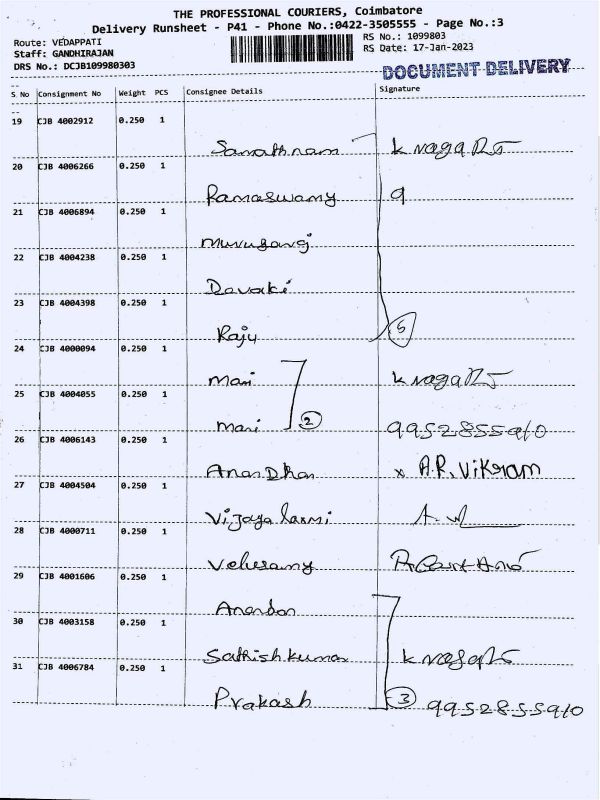 THE PROFESSIONAL COURIERS, Coimbatore
Delivery Runsheet - P41 - Phone No.:0422-3505555 - Page No.:3
Route: VEDAPPATI
Staff: GANDHIRAJAN
DRS No.: DCJB109980303
RS No.: 1099803
RS Date: 17-Jan-2023
DOCUMENT DELIVERY
S No Consignment No Weight PCS Consignee Details Signature
19 CJB 4002912 0.250 1
k nagaRJ
20 CJB 4006266 0.250 1
Ramaswamy 9
21 CJB 4006894 0.250 1
Murugang
22 CJB 4004238 0.250 1
Devaki
23 CJB 4004398 0.250 1
Raju 5
24 CJB 4000094 0.250 1
Mari
25 CJB 4004055 0.250 1
Mari 2 9952855910
26 CJB 4006143 0.250 1
AnanDhan x A.R. Vikram
27 CJB 4004504 0.250 1
Vijaya laxmi
28 CJB 4000711 0.250 1
Velusamy
29 CJB 4001606 0.250 1
Anandan
30 CJB 4003158 0.250 1
Sathish kumar
31 CJB 4006784 0.250 1
Prakash 3 9952855910